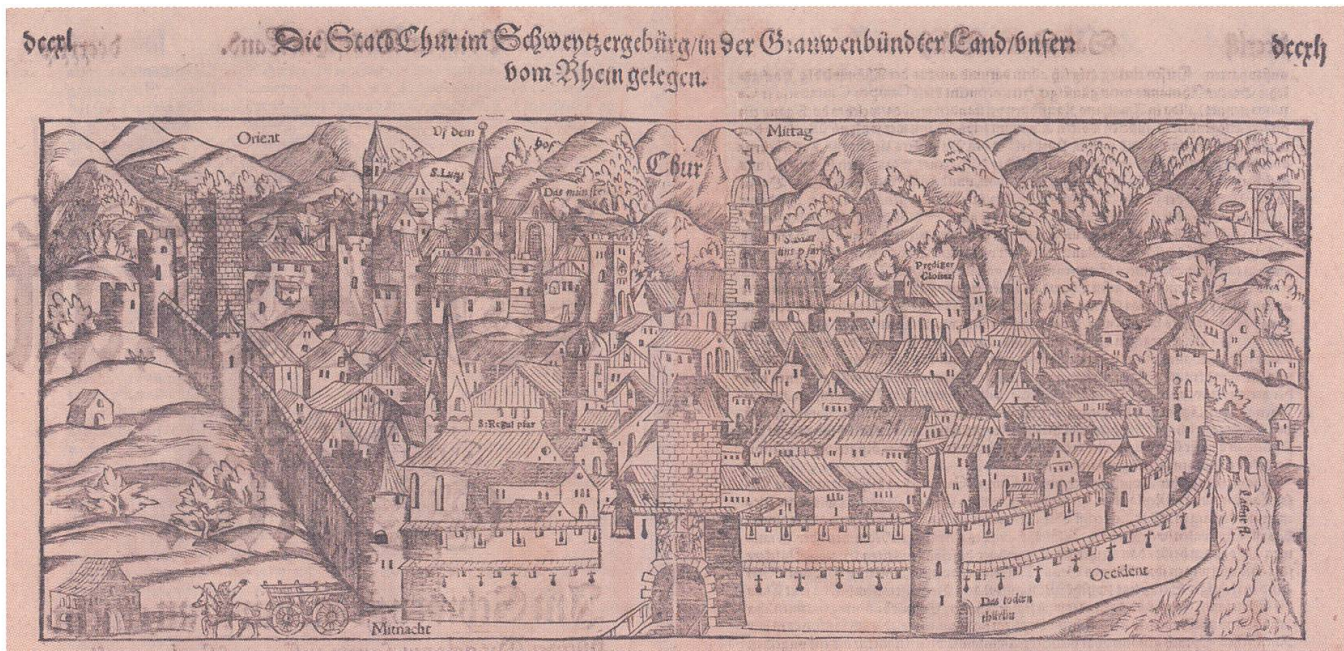 dccxl
Die Statt Chur im Schweytzergebürg/in der Grauwenbündter Land/vnferr
vom Rhein gelegen.
dccxlj
Orient
Vf dem
hof
Mittag
Chur
S. Lucj
Das münster
Prediger
Closter
S. Regul pfar
Occident
Das todten
thürlin
Mitnacht